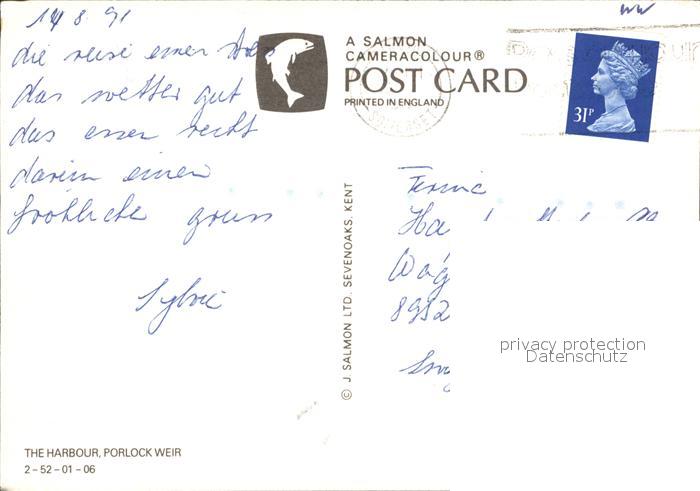 14 8 91
die reise einer
das wetter gut
das essen recht
darum einen
fröhliche gruss
Sylvie
A SALMON
CAMERACOLOUR®
POST CARD
PRINTED IN ENGLAND
SOMERSET
31P
Ha
Wäg
8952
© J. SALMON LTD. SEVENOAKS. KENT
privacy protection
Datenschutz
THE HARBOUR, PORLOCK WEIR
2–52–01–06